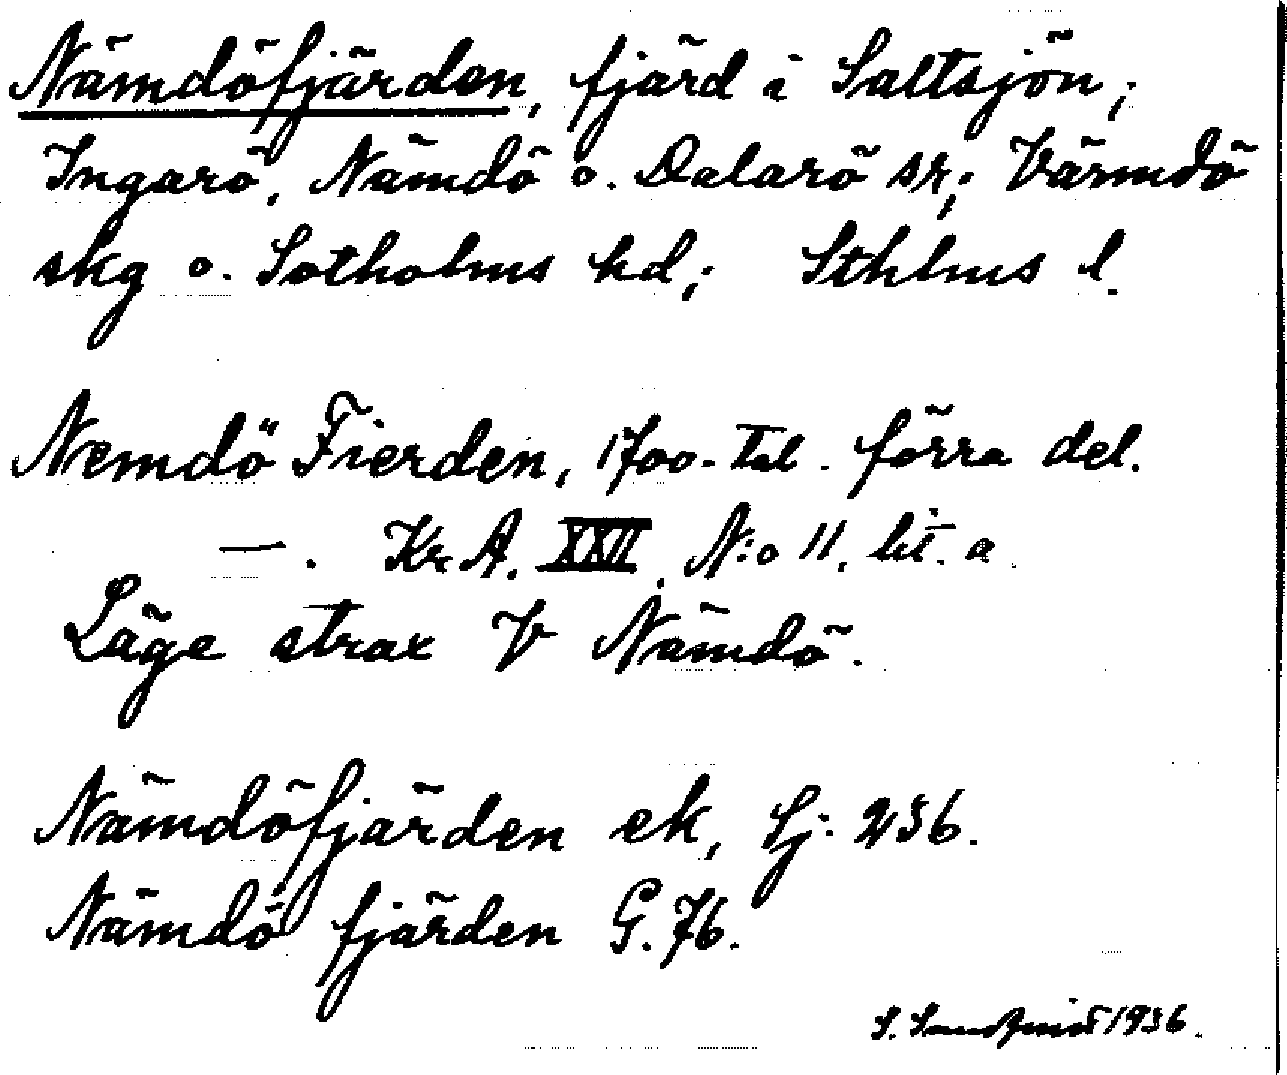 Nämdöfjärden, fjärd i Saltsjön;
Ingarö, Nämdö o. Dalarö sr; Värmdö
skg o. Sotholms hd; Sthlms l.
Nemdö Fierden, 1700-tal. förra del.
—. Kr A. XXII. N:o 11. lit. a.
Läge strax V Nämdö.
Nämdöfjärden ek, Sj. 236.
Nämdö fjärden G. 76.
S. 1936.